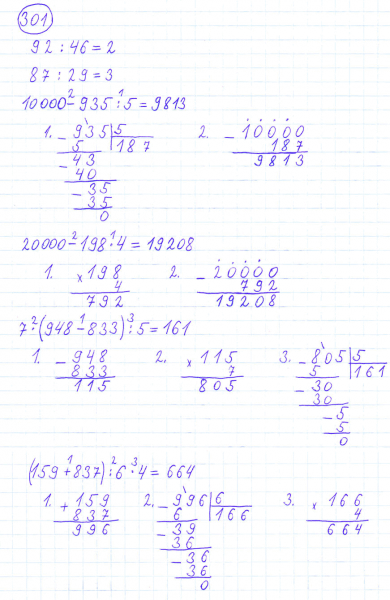 301
92 : 46 = 2
87 : 29 = 3
10000 - 935 : 5 = 9813
1. - 935 | 5
5 187
- 43
40
- 35
35
0
2. - 10000
187
9813
20000 - 198 · 4 = 19208
1. × 198
4
792
2. - 20000
792
19208
7 · (948 - 833) : 5 = 161
1. - 948
833
115
2. × 115
7
805
3. - 805 | 5
5 161
- 30
30
- 5
5
0
(159 + 837) : 6 · 4 = 664
1. + 159
837
996
2. - 996 | 6
6 166
- 39
36
- 36
36
0
3. × 166
4
664